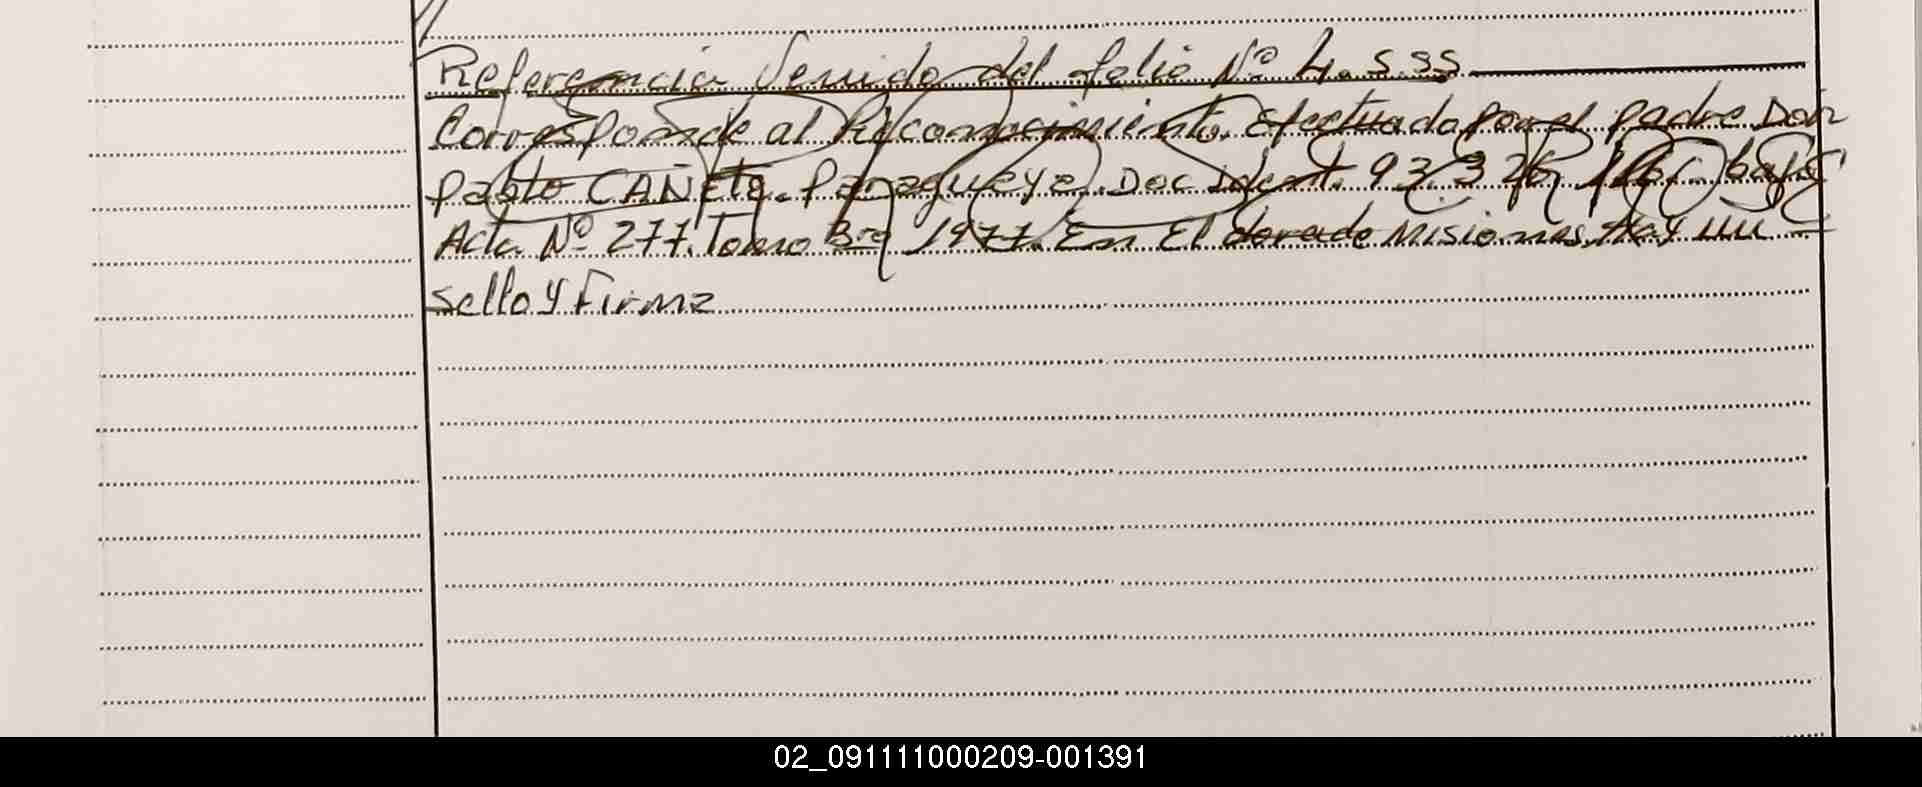 Referencia Venido del folio Nº 4.555
Corresponde al Reconocimiento. Efectuado por el padre Don
Pablo CAÑETE. Paraguaya. Doc Ident. 93.326 bajo
Acta Nº 277. Tomo 3ro 1977. En El dorado Misiones. Hay un
Sello y Firma
02_091111000209-001391